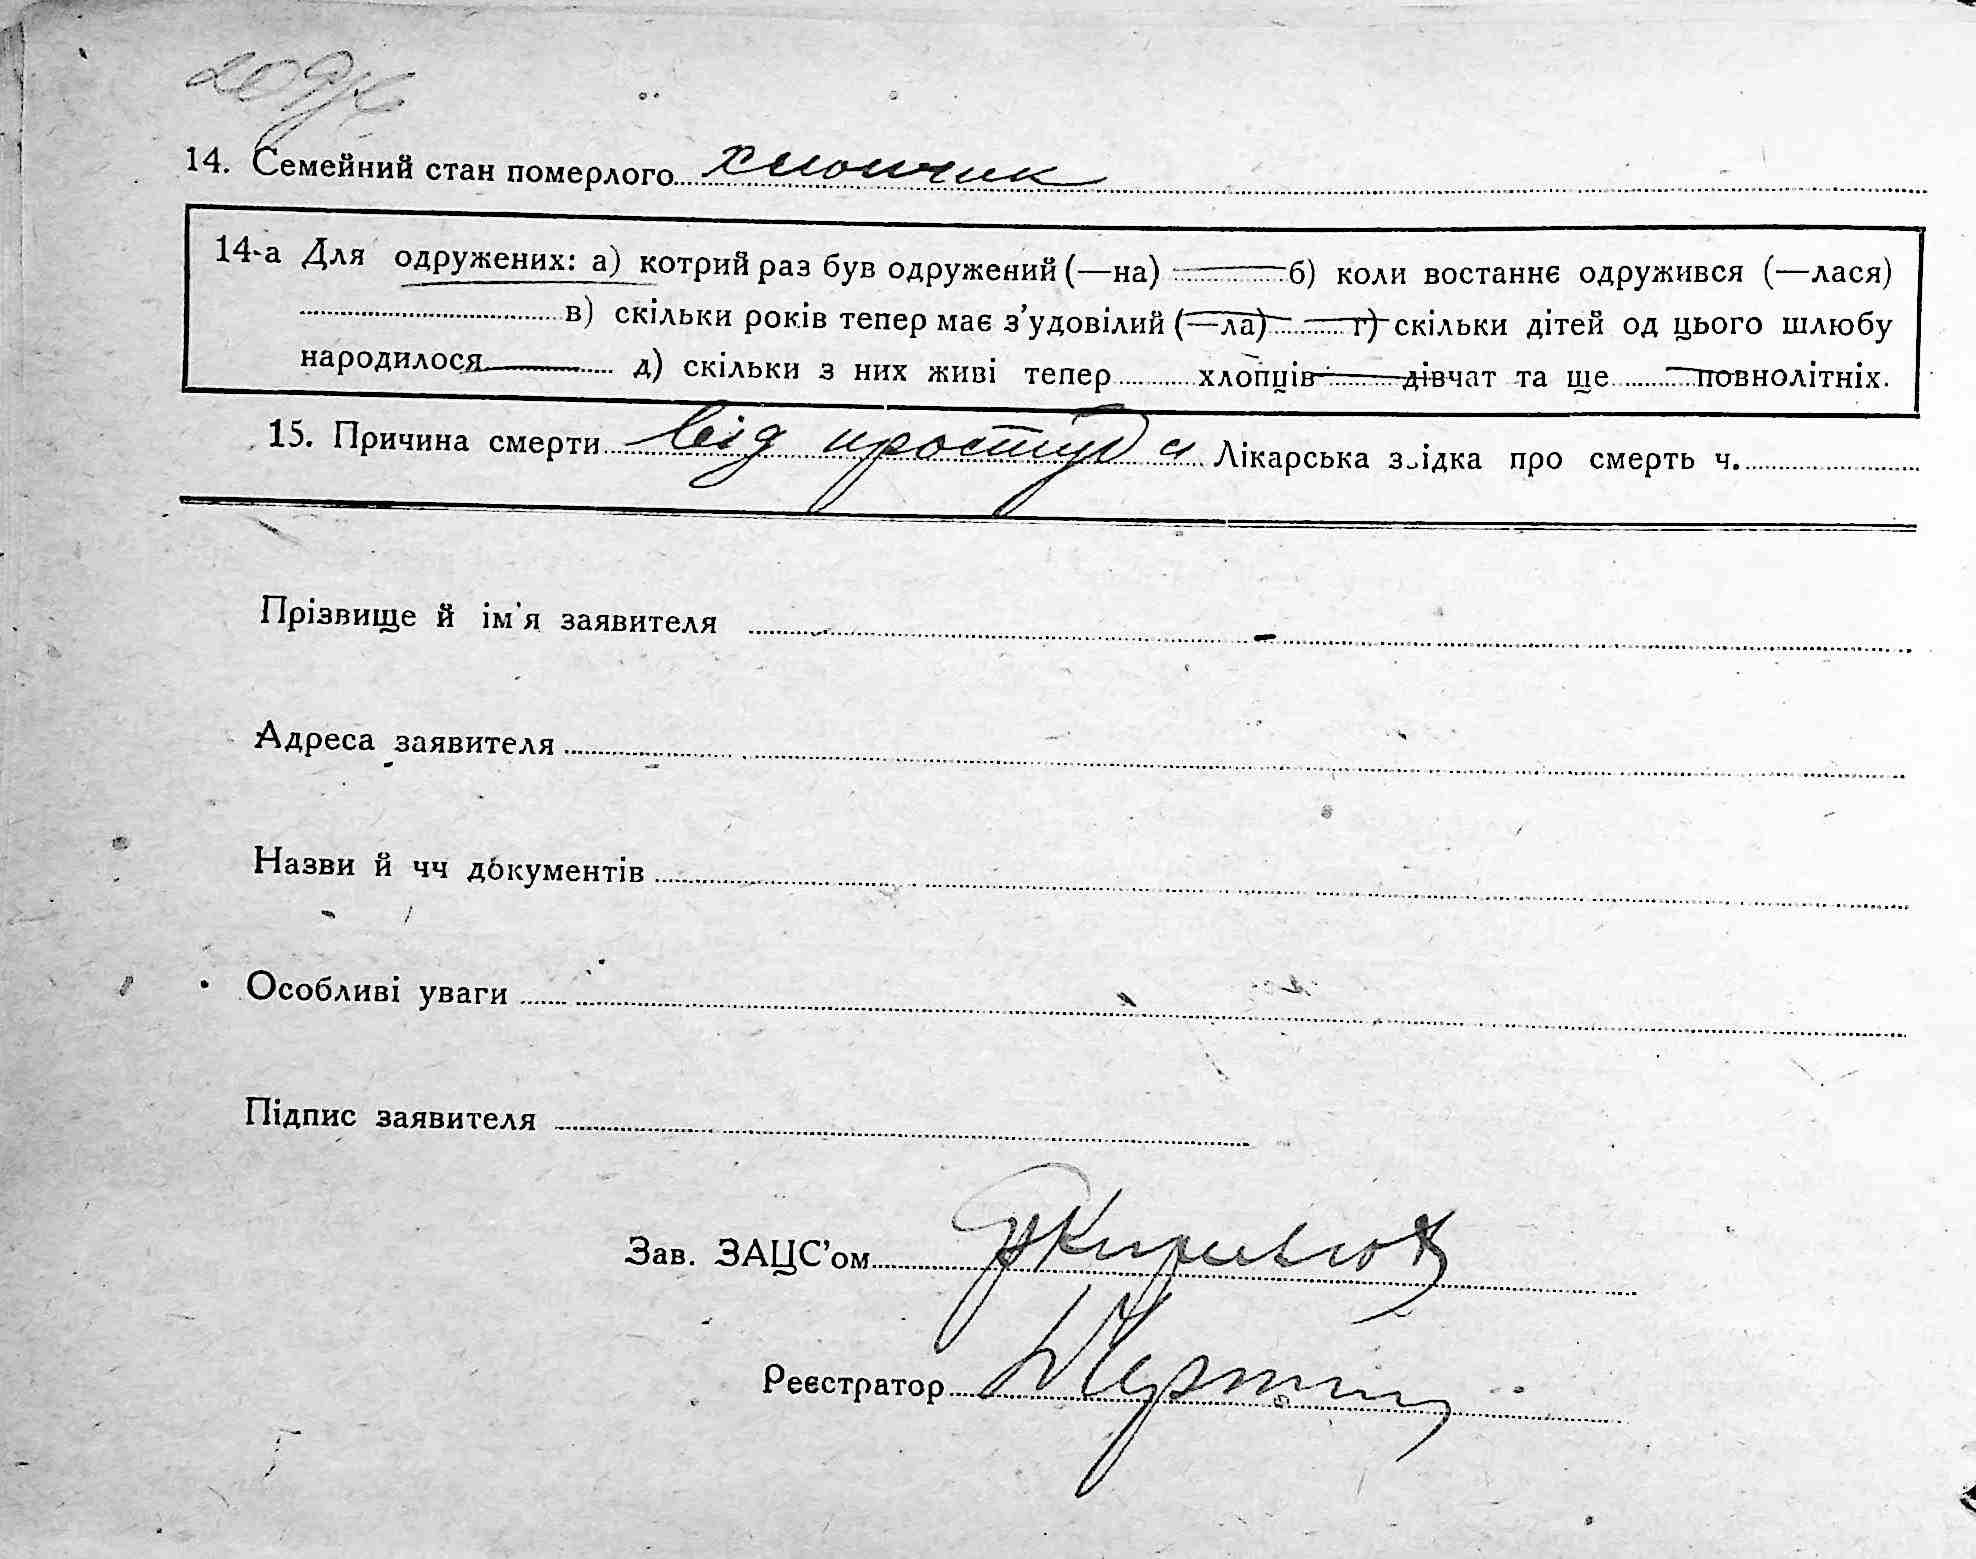 14. Семейний стан померлого хлопчик
14-а Для одружених: а) котрий раз був одружений (—на) б) коли востаннє одружився (—лася)
в) скільки років тепер має з’удовілий (—ла) г) скільки дітей од цього шлюбу
народилося д) скільки з них живі тепер хлопців дівчат та ще повнолітніх.
15. Причина смерти від простуди Лікарська звідка про смерть ч.
Прізвище й ім'я заявителя
Адреса заявителя
Назви й чч документів
Особливі уваги
Підпис заявителя
Зав. ЗАЦС’ом
Реєстратор